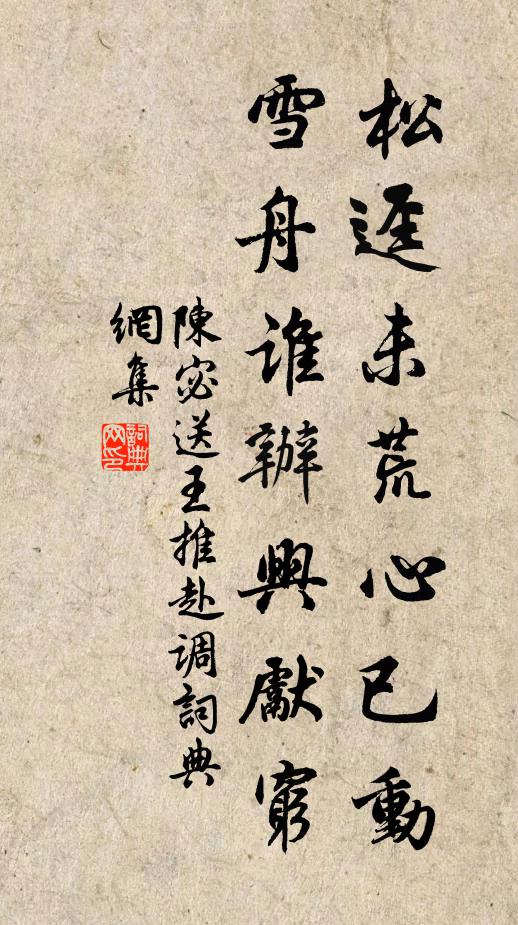 松逕未荒心已動
雪舟誰辦興獻窮
陳宓送王推赴调詞典
網集
詞典
网印